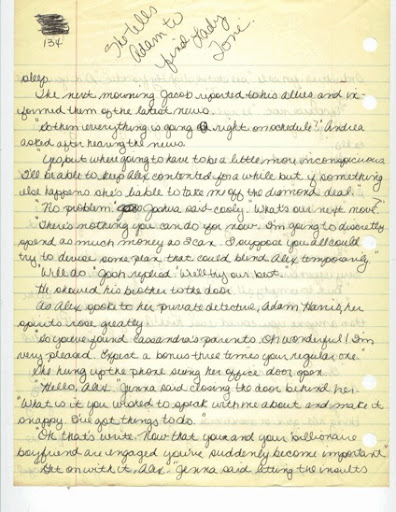 134
She tells
Adam to
find Lady
Toni.
sleep
The next morning Jacob reported to his allies and in-
formed them of the latest news.
"So then everything is going right on schedule?" Andrea
asked after hearing the news.
"Yes but where going to have to be a little more inconspicuous
I'll be able to keep Alex contented for a while but if something
else happens she's liable to take me off the diamond deal."
"No problem" Joshua said cooly. "What's our next move."
"There's nothing you can do for now. I'm going to discretly
spend as much money as I can. I suppose you all could
try to devise some plan that could blind Alex temporarily"
"Will do." Josh replied "We'll try our best."
He showed his brother to the door
As Alex spoke to her private detective, Adam Harris, her
spirits rose greatly.
"So you've found Cassandra's parents. Oh wonderful! I'm
very pleased. Expect a bonus three times your regular one."
She hung up the phone swung her office door open
"Hello, Alex" Jenna said closing the door behind her.
"What is it you wished to speak with me about and make it
snappy. I've got things to do."
"Oh that's write. Now that you and your billionaire
boyfriend are engaged you've suddenly become important"
"Get on with it, Alex. Jenna said letting the insults